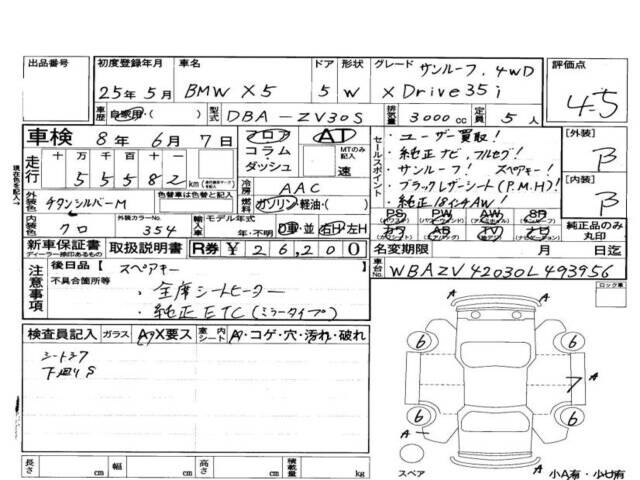 出品番号 初度登録年月 車名 ドア 形状 グレード サンルーフ. 4WD 評価点
25年5月 BMW X5 5 W xDrive35i 4.5
車歴 自家用・( ) 型式 DBA-ZV30S 排気量 3000cc 定員 5人
車検 8年 6月 7日 フロア AT セールスポイント ・ユーザー買取! [外装] B
走行 十万 千百十 55582 km コラム・ダッシュ MTのみ記入 速 ・純正ナビ、フルセグ!
・サンルーフ! スペアキー!
冷房 AAC ・ブラックレザーシート(P.M.H)! [内装] B
外装色 チタンシルバーM 色替車は色替と記入 燃料 ガソリン・軽油・( ) ・純正18インチAW!
PS PW AW SR
内装色 クロ 外装カラーNo. 354 輸入車 モデル年式 年・不明 D車・並 右H・左H 純正品のみ丸印
新車保証書 ディーラー捺印あるもの 取扱説明書 R券 ¥26,200 名変期限 月 日迄
車台No. WBAZV42030L493956
注意事項 後日品 [ スペアキー ] ロック車
不具合箇所等 ・全席シートヒーター
・純正ETC(ミラータイプ)
検査員記入 ガラス A・X要ス 室内シート A・コゲ・穴・汚れ・破れ
下廻りS
A
6 6
A 7 A
6 6
A A
スペア 小A有・小U有
長さ cm 幅 cm 高さ cm 積載量 kg
現在色を記入